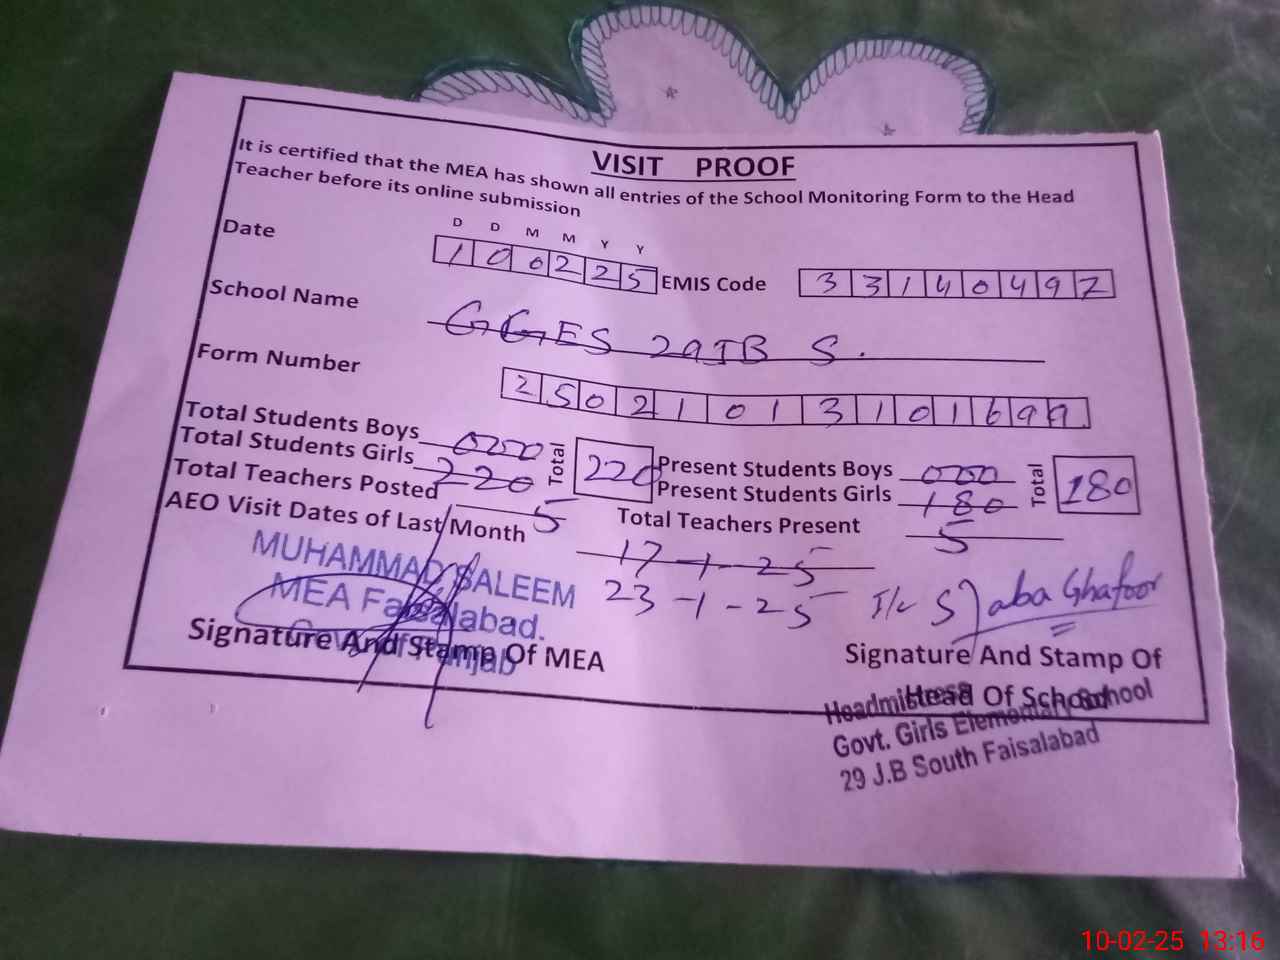 VISIT PROOF
It is certified that the MEA has shown all entries of the School Monitoring Form to the Head
Teacher before its online submission
D D M M Y Y
Date 1 0 0 2 2 5 EMIS Code 3 3 1 4 0 4 9 7
School Name GGES 29JB S.
Form Number 2 5 0 2 1 0 1 3 1 0 1 6 9 9
Total Students Boys 000 Total 220 Present Students Boys 000 Total 180
Total Students Girls 220 Present Students Girls 180
Total Teachers Posted 5 Total Teachers Present 5
AEO Visit Dates of Last Month 17-1-25
23-1-25
MUHAMMAD SALEEM
MEA Faisalabad.
Govt of Punjab
I/c Saba Ghafoor
Signature And Stamp Of MEA
Signature And Stamp Of
Head Of School
Headmistress
Govt. Girls Elementary School
29 J.B South Faisalabad
10-02-25 13:16